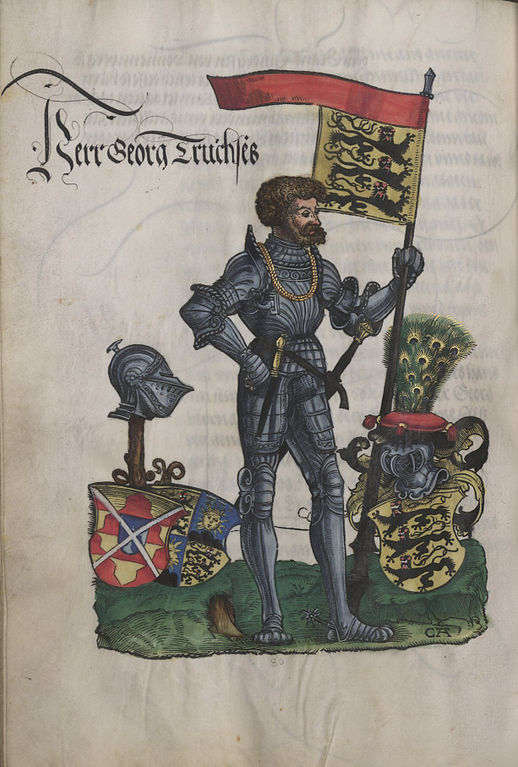 Herr Georg Truchses
CA
80